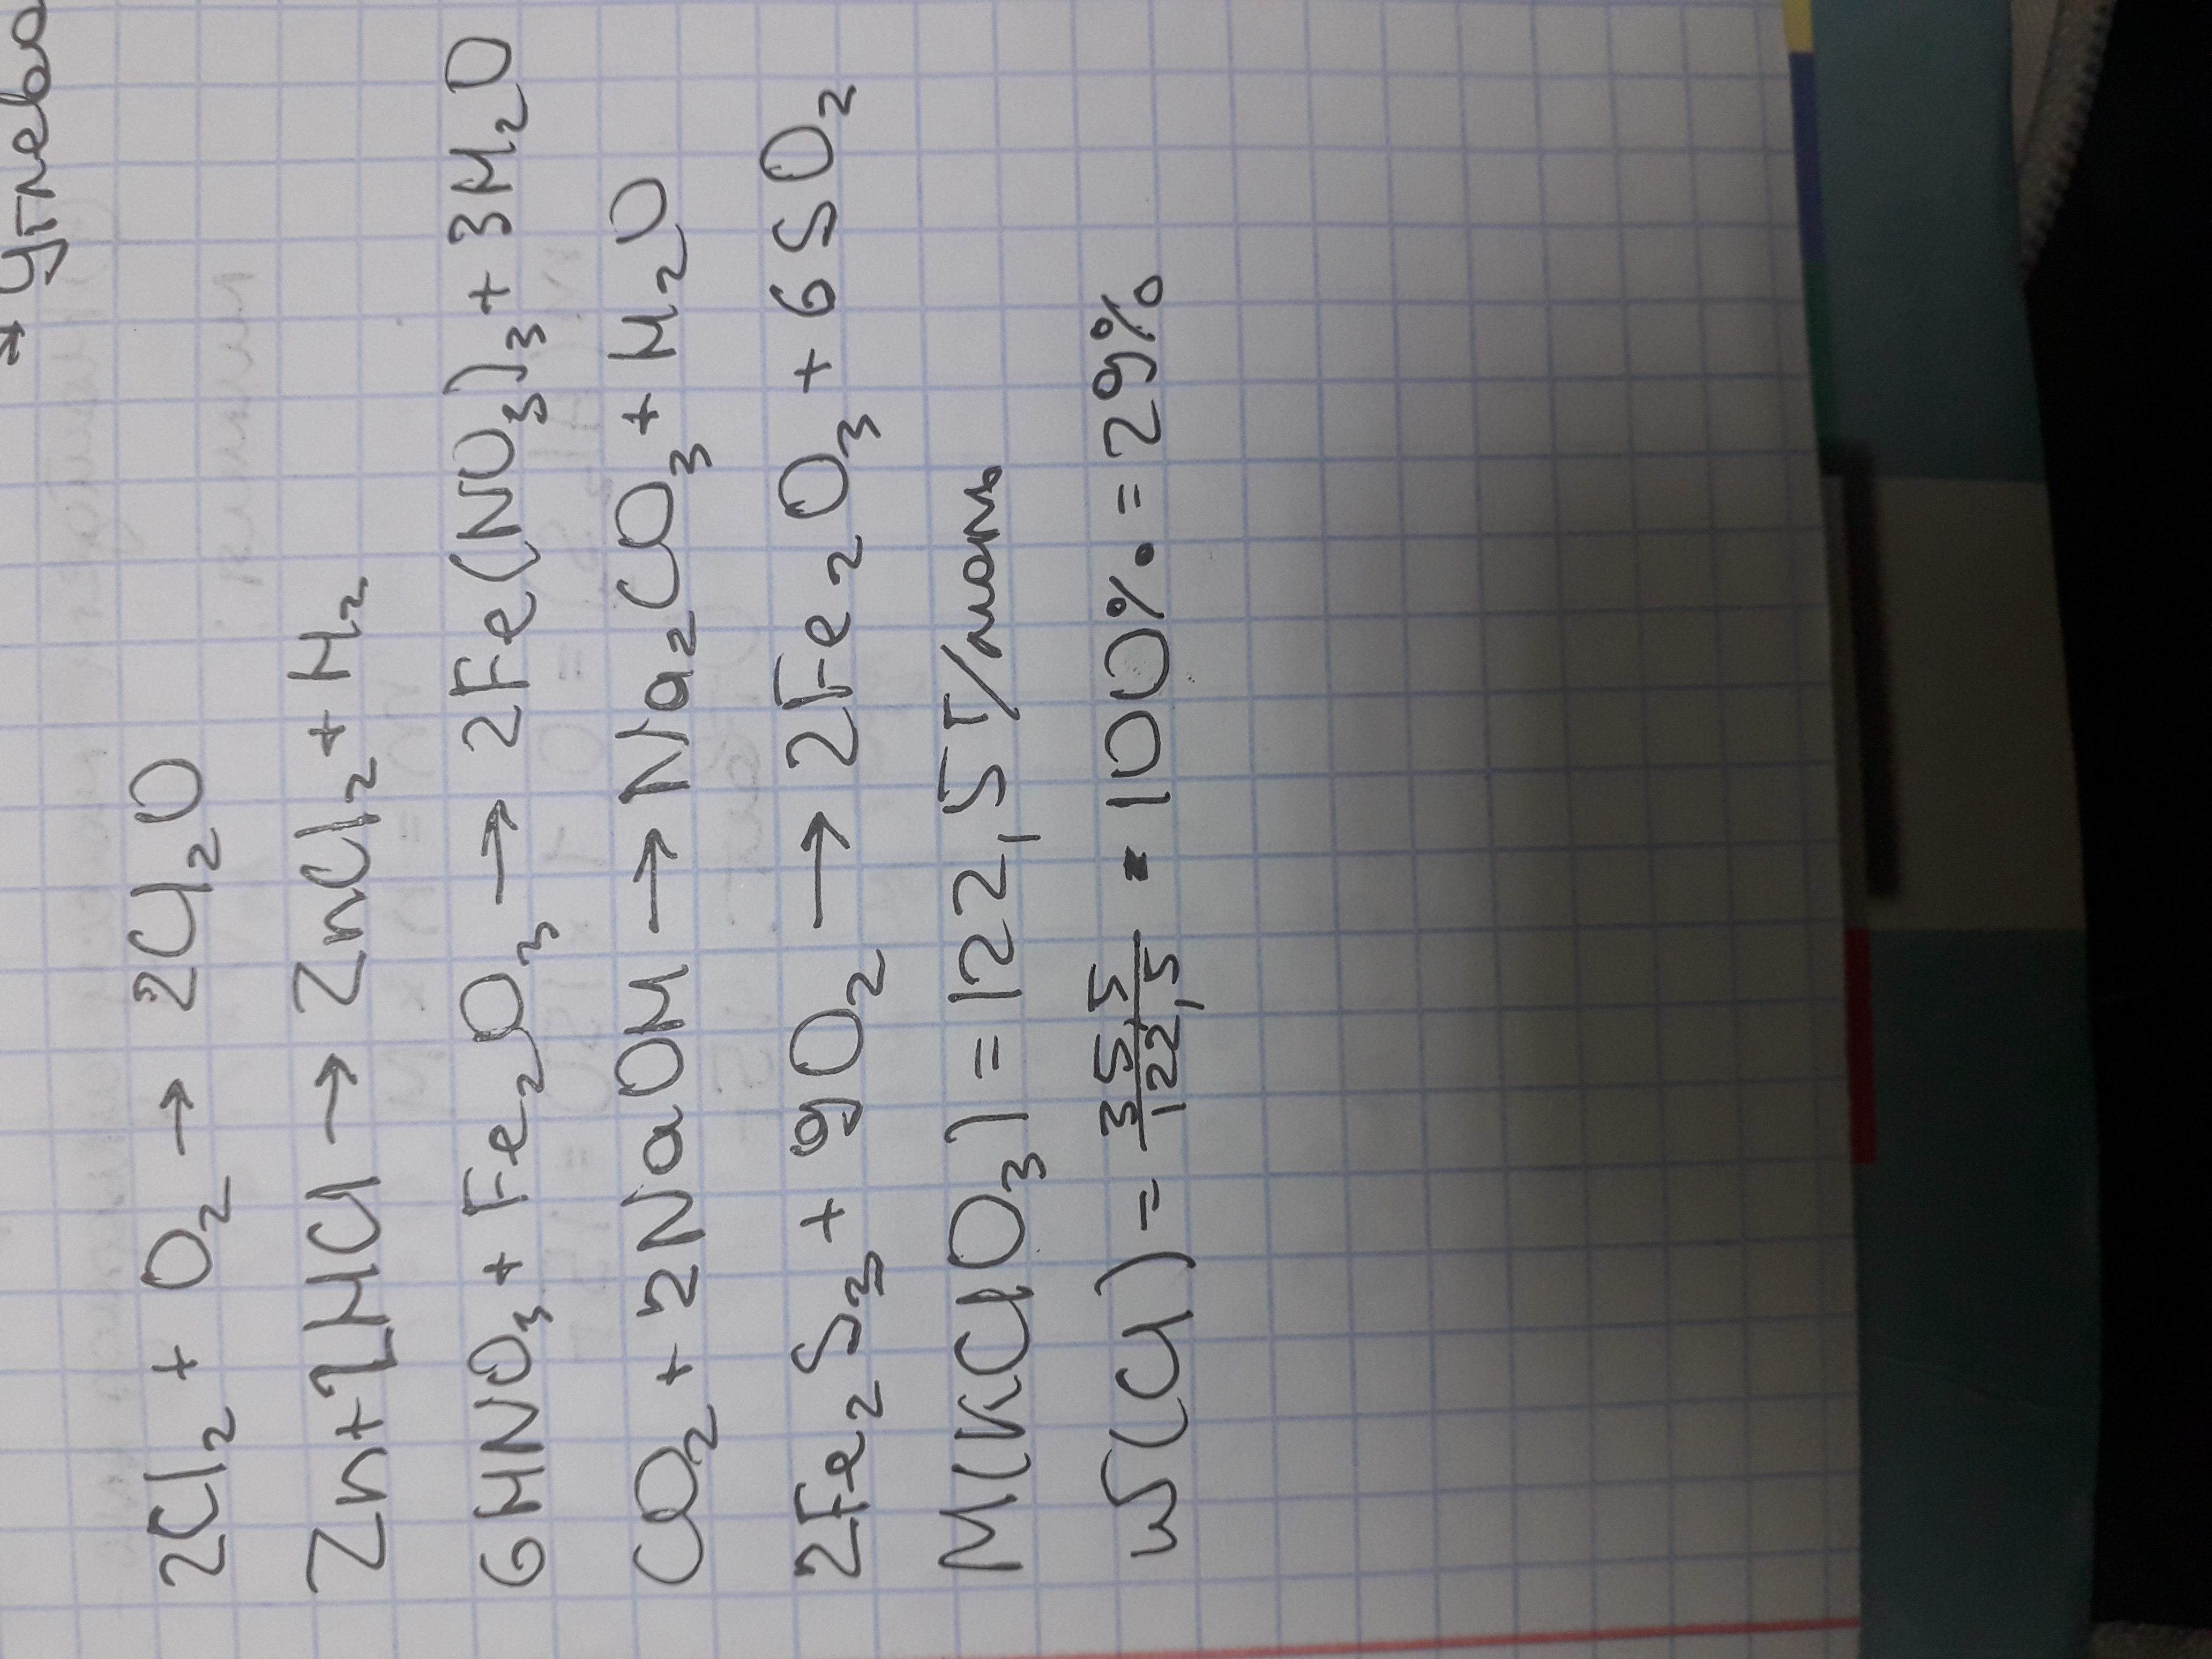 → углево
2Cl₂ + O₂ → 2Cl₂O
Zn + 2HCl → ZnCl₂ + H₂
6HNO₃ + Fe₂O₃ → 2Fe(NO₃)₃ + 3H₂O
CO₂ + 2NaOH → Na₂CO₃ + H₂O
2Fe₂S₃ + 9O₂ → 2Fe₂O₃ + 6SO₂
M(KClO₃) = 122,5 г/моль
w(Cl) = 35,5/122,5 · 100%. = 29%